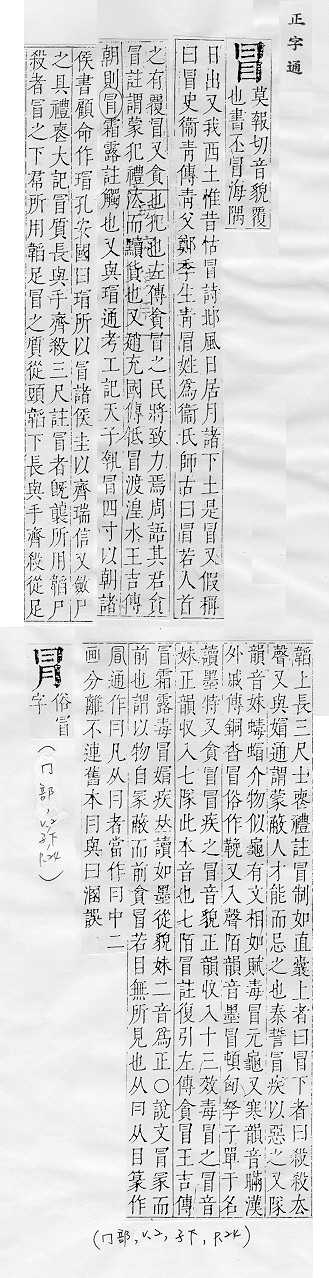 正字通
冒 莫報切音貌覆
也書丕冒海隅
日出又我西土惟昔怙冒詩邶風日居月諸下土是冒又假稱
曰冒史衞靑傳靑父鄭季生靑冒姓爲衞氏師古曰冒若人首
之有覆冒又貪也犯也左傳貪冒之民將致力焉周語其君貪
冒註謂蒙犯禮法而黷貨也又趙充國傳低冒渡湟水王吉傳
朝則冒霜露註觸也又與瑁通考工記天子執冒四寸以朝諸
侯書顧命作瑁孔安國曰瑁所以冒諸侯圭以齊瑞信又斂尸
之具禮喪大記冒質長與手齊殺三尺註冒者旣襲所用韜尸
殺者冒之下帬所用韜足冒之質從頭韜下長與手齊殺從足
韜上長三尺士喪禮註冒制如直囊上者曰冒下者曰殺殺去
聲又與媢通謂蒙蔽人才能而忌之也泰誓冒疾以惡之又隊
韻音妹蝳蝐介物似龜有文相如賦毒冒元龜又寒韻音瞞漢
外戚傳銅沓冒俗作鞔又入聲陌韻音墨冒頓匈拏子單于名
讀墨特又貪冒冒疾之冒音貌正韻收入十三效毒冒之冒音
妹正韻收入七隊此本音也七陌冒註復引左傳貪冒王吉傳
冒霜露毒冒媢疾𠀤讀如墨從貌妹二音爲正○說文冒冡而
前也謂以物自冡蔽而前貪冒若目無所見也从冃从目篆作
冐通作曰凡从冃者當作曰中二
画分離不連舊本冃與曰溷誤
冐 俗冒
字
(冂部, v.2,
子下
P.24)
(冂部, v.2, 子下, P.24)